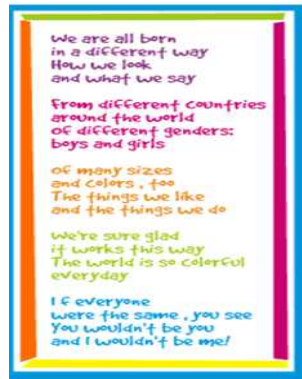 We are all born
in a different way
How we look
and what we say
From different countries
around the world
Of different genders:
boys and girls
Of many sizes
and colors , too
The things we like
and the things we do
We're sure glad
it works this way
The world is so colorful
everyday
If everyone
were the same , you see
You wouldn't be you
and I wouldn't be me!